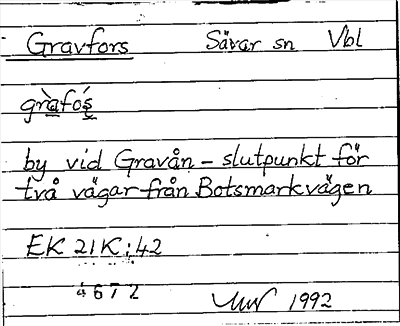 Gravfors Sävar sn Vbl
gràfóş
by vid Gravån – slutpunkt för
två vägar från Botsmarkvägen
EK 21K:42
4672
1992